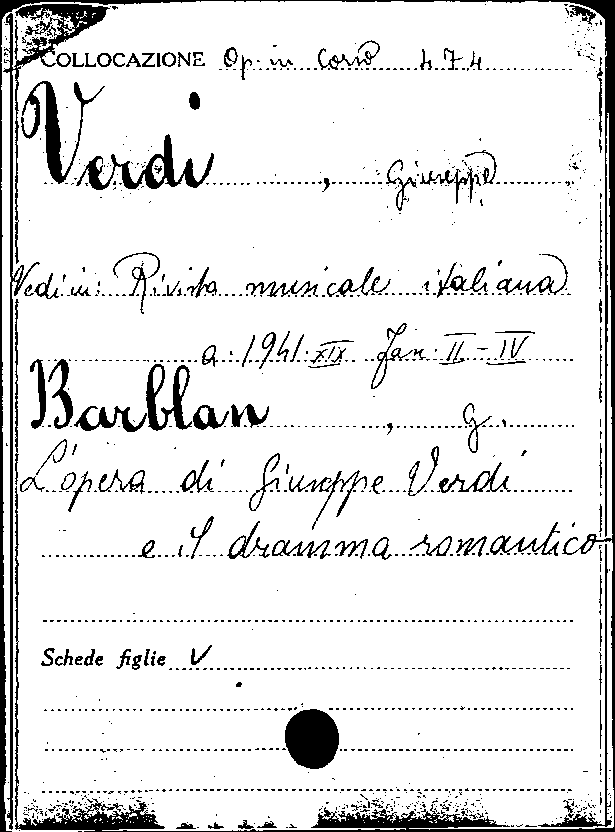 COLLOCAZIONE Op. in Corso 474
Verdi, Giuseppe
Vedi in: Rivista musicale italiana
a. 1941. XIX Fasc. II - IV
Barblan, G.
L'opera di Giuseppe Verdi
e il dramma romantico
Schede figlie V